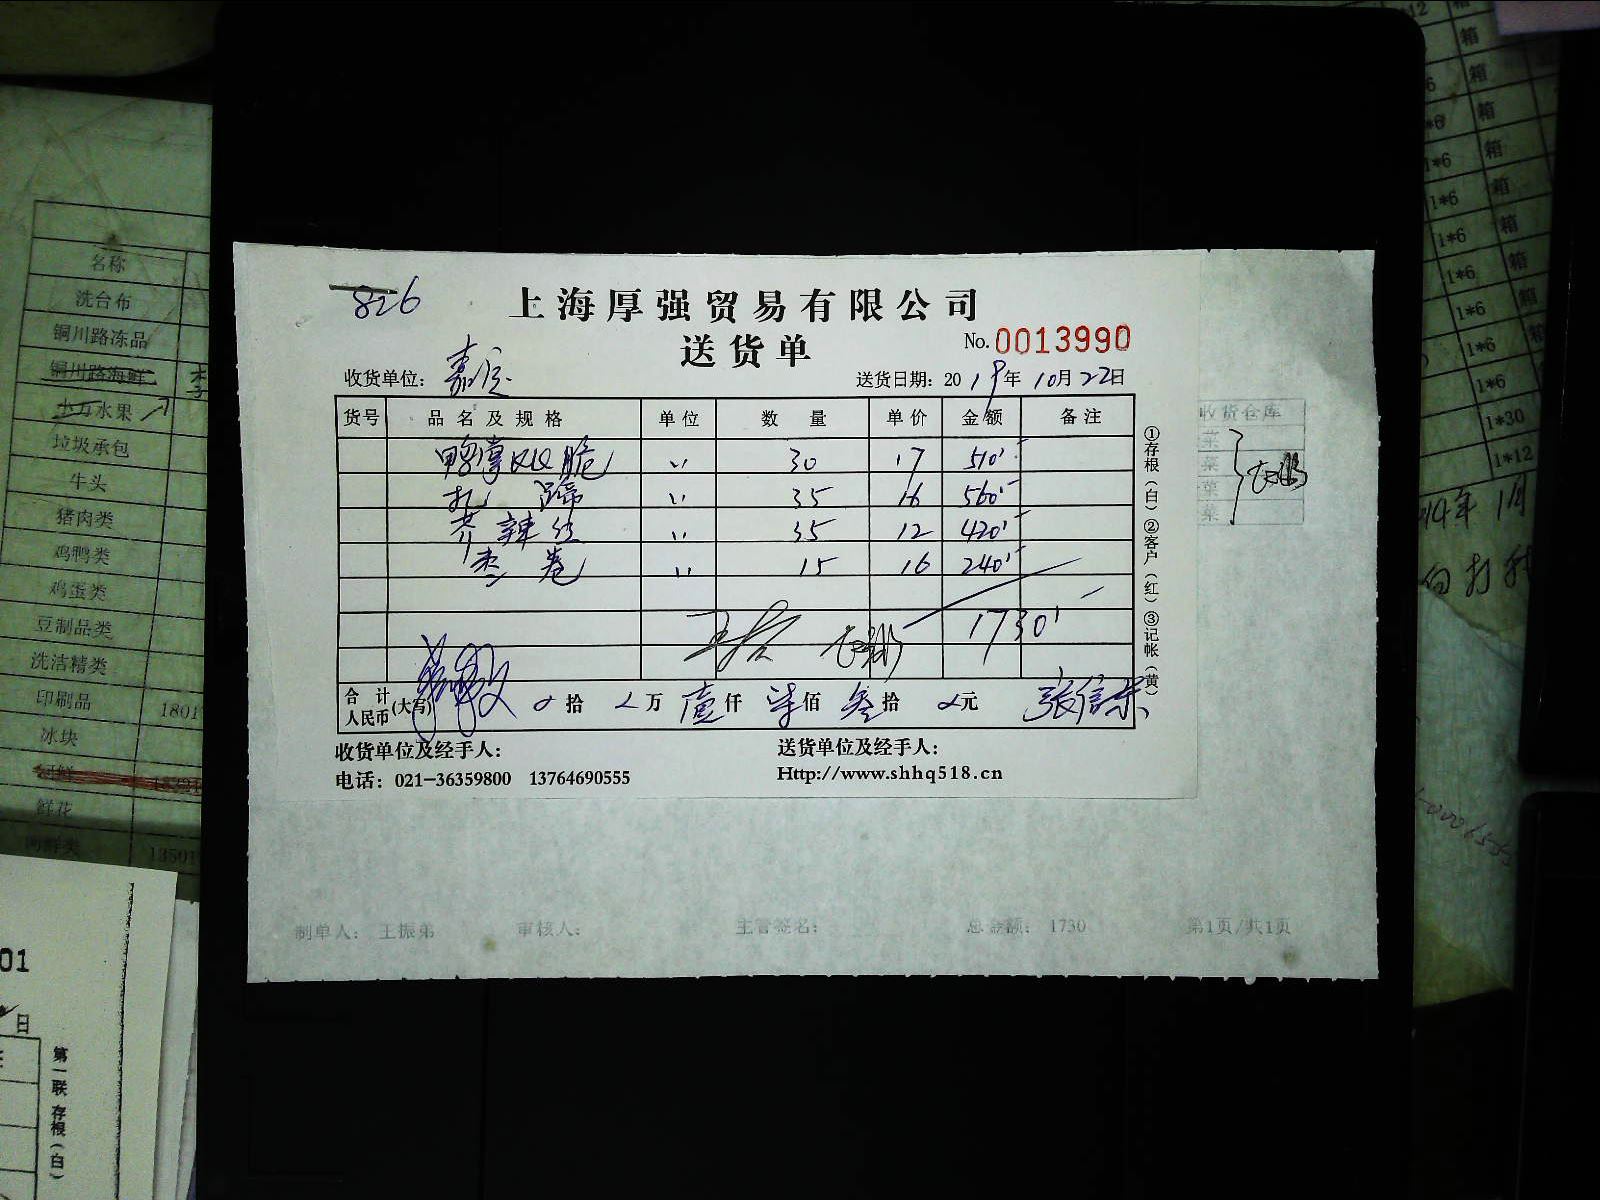 826
上海厚强贸易有限公司
送货单
No. 0013990
收货单位: 嘉定
送货日期: 2019年10月22日
货号 品名及规格 单位 数量 单价 金额 备注
30 17 510
扎蹄 35 16 560
芥辣丝 35 12 420
枣卷 15 16 240
1730
合计人民币(大写) 拾 万 壹仟 柒佰 叁拾 元 张信东
①存根(白)②客户(红)③记帐(黄)
收货单位及经手人:
送货单位及经手人:
电话: 021-36359800 13764690555
Http://www.shhq518.cn
收货仓库
菜
菜
菜
菜
制单人: 王振弟 审核人: 主管签名: 总金额: 1730 第1页/共1页
名称
洗台布
铜川路冻品
铜川路海鲜 李
水果
垃圾承包
牛头
猪肉类
鸡鸭类
鸡蛋类
豆制品类
洗洁精类
印刷品 1801
冰块
鲜花
13501
01
日
第一联 存根(白)
箱
箱
1*6 箱
1*6 箱
1*6 箱
1*6 箱
1*6 箱
1*6 箱
1*6
1*6
1*30
1*12